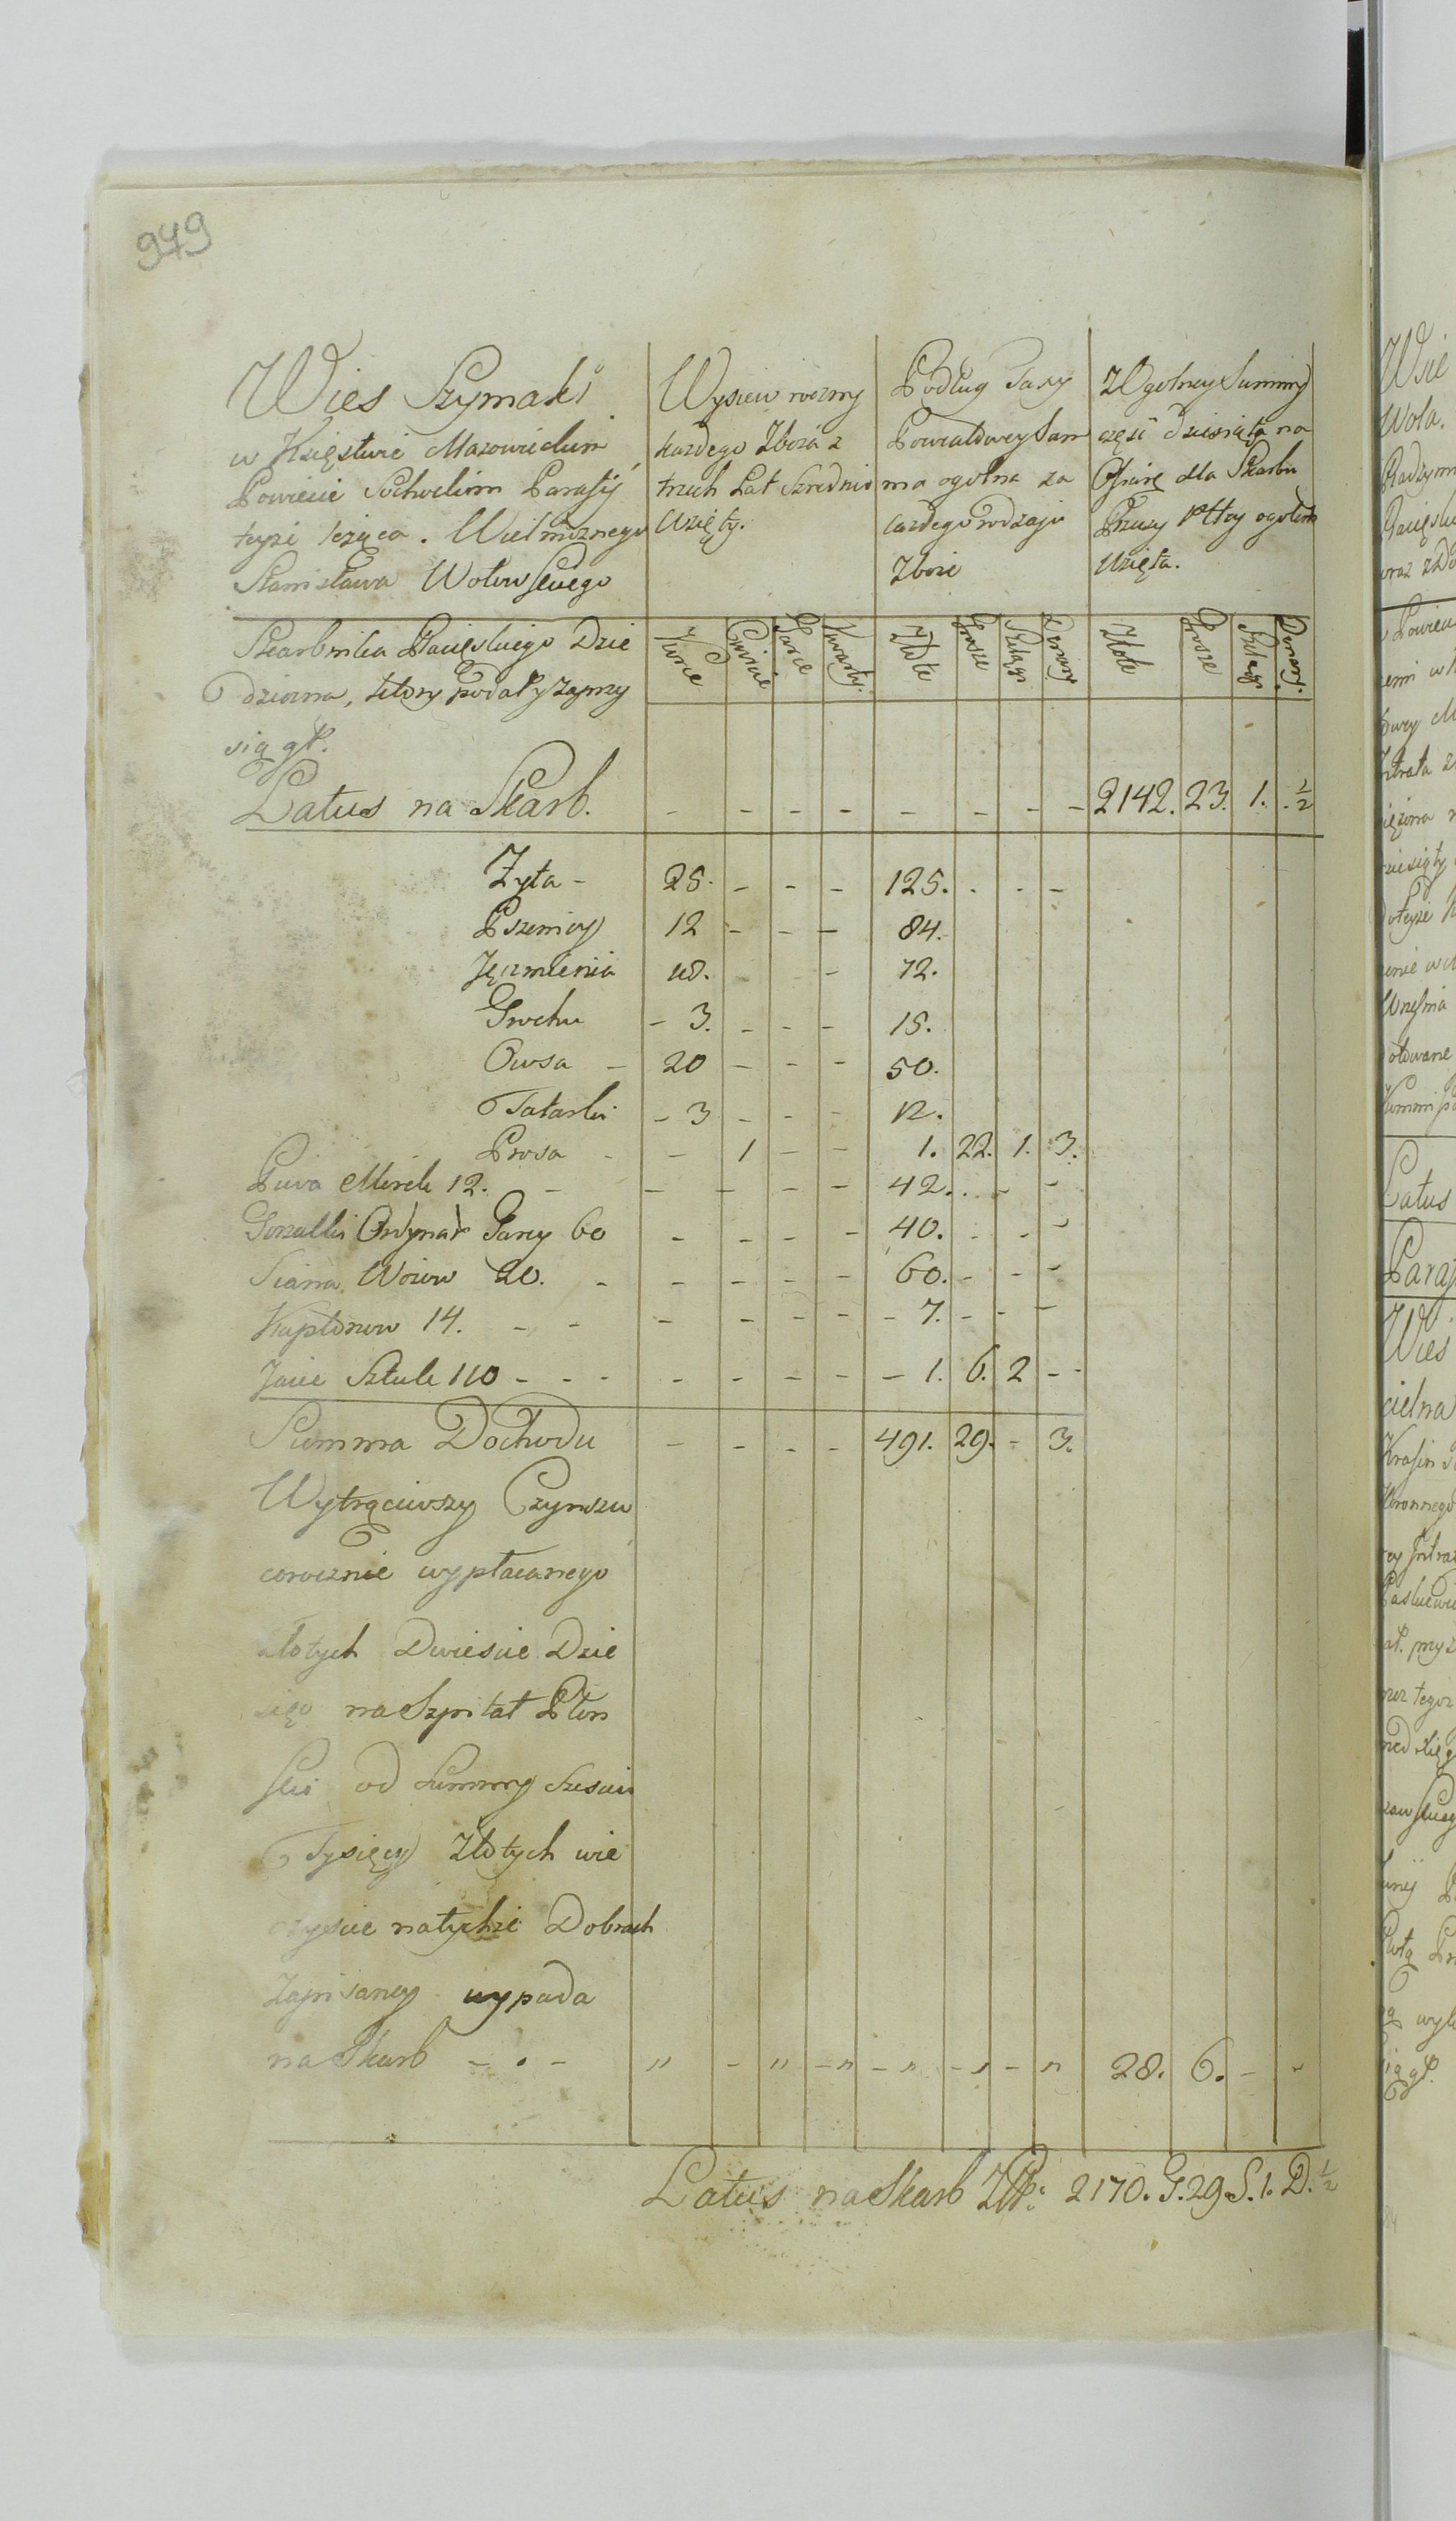 949
Wies Szymaki
w Xsięstwie Mazowieckim
Powiecie Sochockim Parafij
teyże leżąca. Wielmożnego
Stanisława Wołowskiego
Skarbnika Dzie
dziczna, ktory podał y zaprzy
siągł.
Wysiew roczny
każdego Zboża z
trzech Lat Szrednio
Wzięty.
Podług Taxy
Powiatowey Sum
ma ogolna za
każdego rodzaju
Zboże
Z Ogolney Summy
część dziesiąta na
Ofiarę dla Skarbu
Wzięta.
Korce Cwierci Garce Kwarty. Złote Grosze Szelągi Denary Złote Grosze Szelągi Denary.
Latus na Skarb. - - - - - - - - 2142. 23. 1. ½
Zyta - 25. - - - 125. - - -
Pszenicy 12 - - - 84.
Jęczmienia 18. - - 72.
Grochu - 3. - - - 15.
Owsa - 20 - - - 50.
Tatarki - 3 - - - 12.
Prosa - - 1 - - 1. 22. 1. 3.
Piwa Merek 12. - - - - - 42. . - -
Gorzałki Ordynar Garcy 60 - - - - 40. - - -
Siana Wozow 20. - - - - - 60. - - -
Kapłonow 14. - - - - - - - 7. - - -
Jaiec Sztuk 110 - - - - - - - - 1. 6. 2 - -
Summa Dochodu - - - - 491. 29. - 3.
Wytrąciwszy Czynszu
corocznie wypłacanego
złotych Dwiescie Dzie
sięc na Szpital Płon
ski od Summy Szesciu
Tysięcy Złotych wie
czyscie natychże Dobrach
Zapisaney wypada
na Skarb - . - " - " - " - " - " - " 28. 6. - -
Latus na Skarb Złłp: 2170. G. 29. S. 1. D. ½